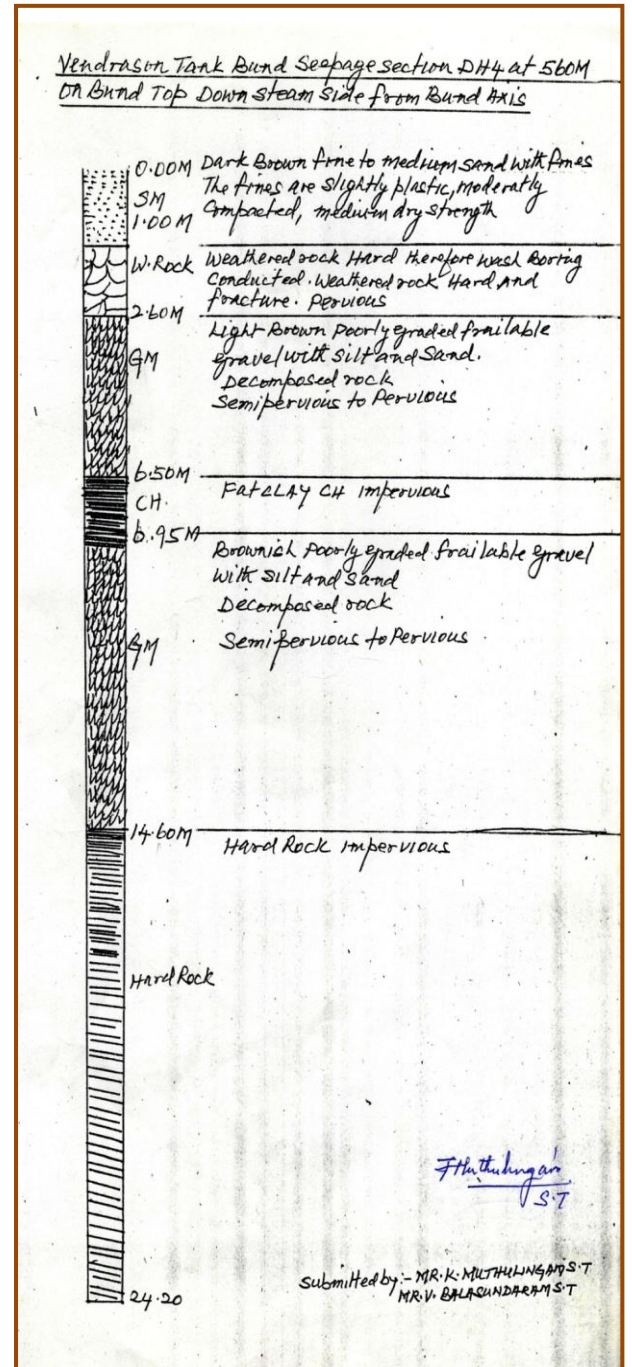 Vendrason Tank Bund Seepage section DH4 at 560M
on Bund Top Down Steam Side from Bund Axis
0.00M Dark Brown fine to medium sand with fines
SM The fines are slightly plastic, moderatly
1.00M Compacted, medium dry strength
W.Rock Weathered rock Hard therefore wash Boring
Conducted. Weathered rock Hard and
2.60M fracture. Pervious
Light Brown poorly graded frailable
GM gravel with silt and sand.
Decomposed rock
Semipervious to Pervious
6.50M
CH. Fat CLAY CH impervious
6.95M
Brownish poorly graded frailable gravel
with silt and sand
Decomposed rock
GM Semipervious to Pervious
14.60M
Hard Rock impervious
Hard Rock
S.T
24.20
Submitted by:- MR.K. MUTHULINGAM S.T
MR.V. BALASUNDARAM S.T